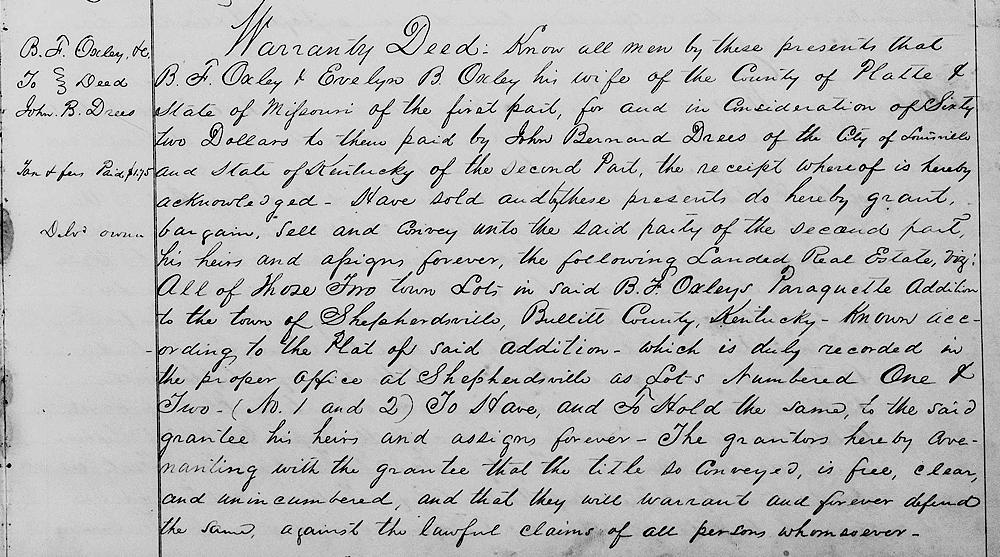 B. F. Oxley, &c.
To } Deed
John. B. Drees
Tax & fees Paid $1.75
Delvd owner
Warranty Deed: Know all men by these presents that
B. F. Oxley & Evelyn B. Oxley his wife of the County of Platte &
State of Missouri of the first part, for and in Consideration of Sixty
two Dollars to them paid by John Bernard Drees of the City of Louisville
and State of Kentucky of the second Part, the receipt whereof is hereby
acknowledged - Have sold and by these presents do hereby grant,
bargain, sell and convey unto the said party of the second part,
his heirs and assigns forever, the following Landed Real Estate, viz:
All of those Two town Lots in said B. F. Oxleys Paraquette Addition
to the town of Shepherdsville, Bullitt County, Kentucky - Known acc-
ording to the Plat of said addition - which is duly recorded in
the proper office at Shepherdsville as Lots Numbered One &
Two - (No. 1 and 2) To Have, and To Hold the same, to the said
grantee his heirs and assigns forever - The grantors hereby cove-
nanting with the grantee that the title so conveyed, is free, clear,
and unincumbered, and that they will warrant and forever defend
the same, against the lawful claims of all persons whomsoever -